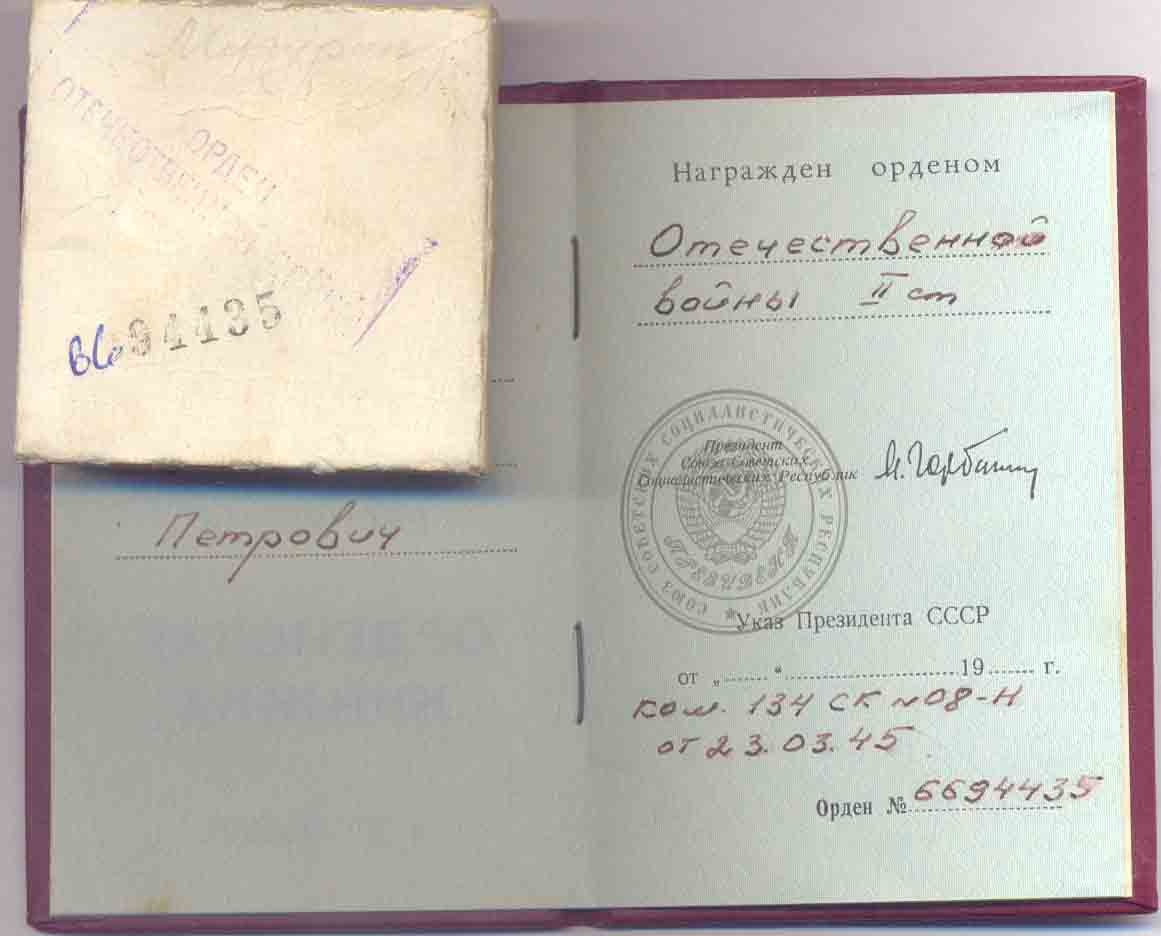 ОРДЕН
ОТЕЧЕСТВЕН
вб 94435
Петрович
Награжден орденом
Отечественной
войны II ст
СОЮЗ СОВЕТСКИХ СОЦИАЛИСТИЧЕСКИХ РЕСПУБЛИК
ПРЕЗИДЕНТ
Президент
Союза Советских
Социалистических Республик
М. Горбачев
Указ Президента СССР
от „ “ 19 г.
ком. 134 СК №08-Н
от 23.03.45
Орден № 6694435